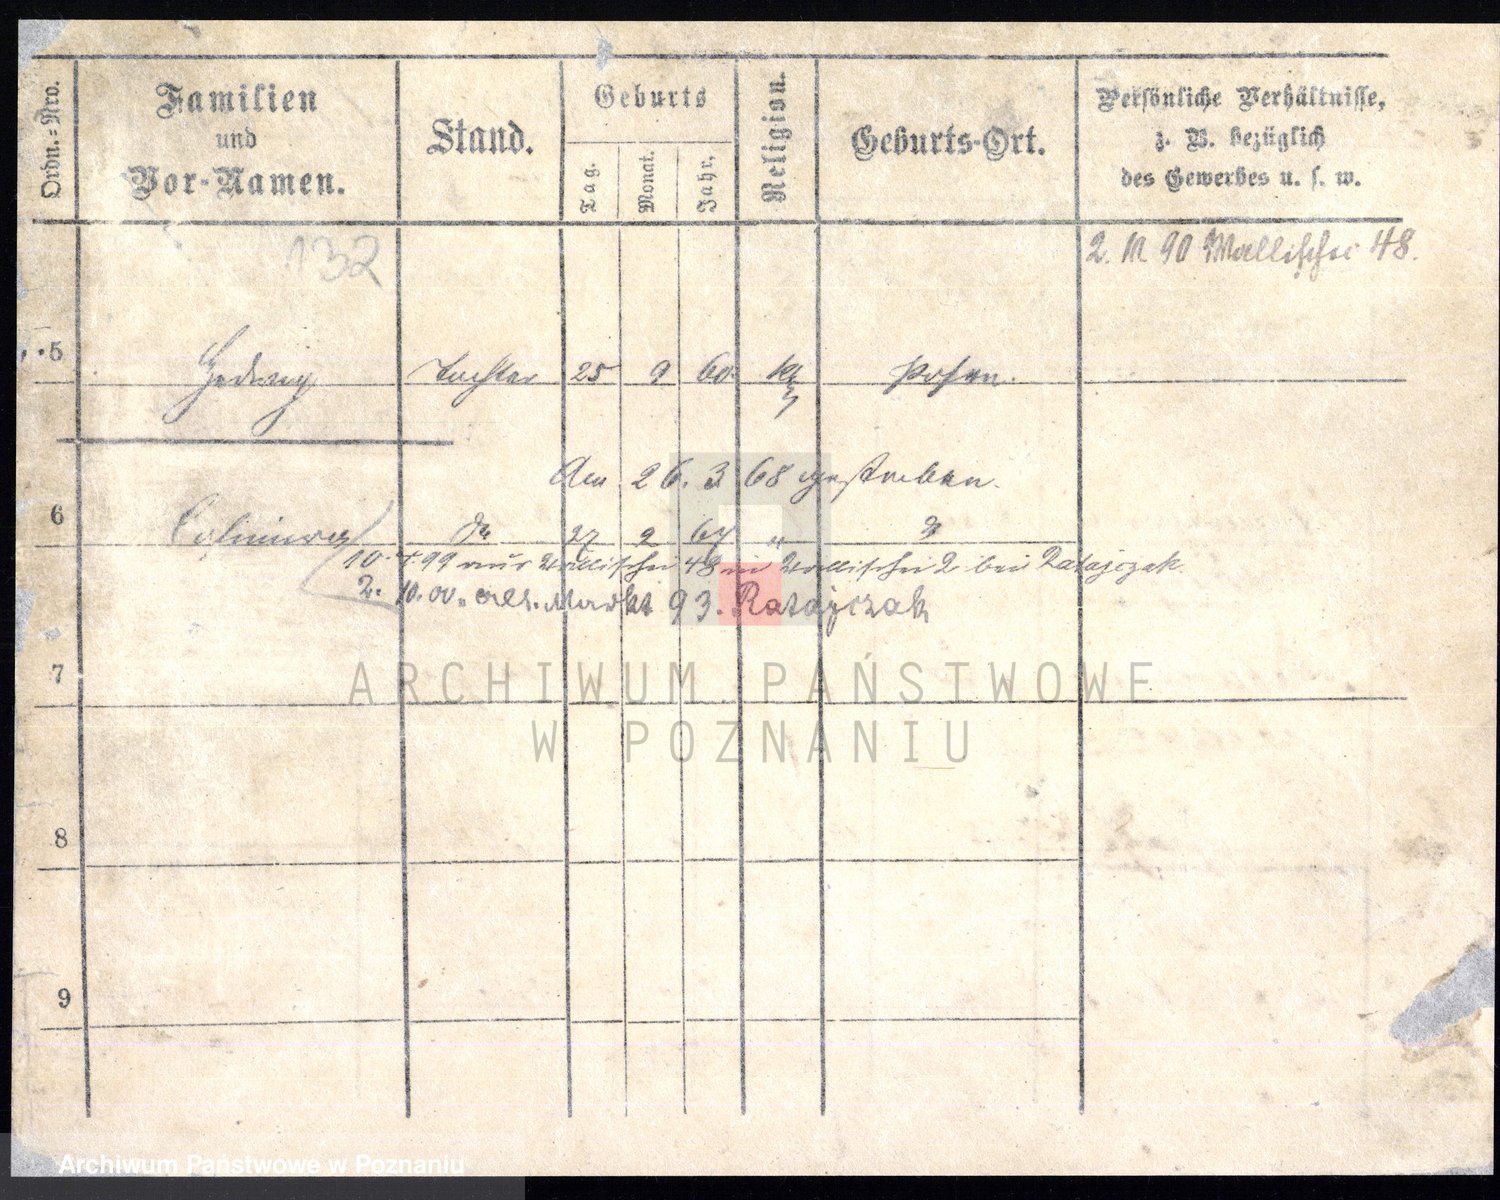 Ordn.=Nro.
Familien
und
Vor-Namen.
Stand.
Geburts
Tag.
Monat.
Jahr.
Religion.
Geburts-Ort.
Persönliche Verhältnisse,
z. B. bezüglich
des Gewerbes u. s. w.
132
2. 11. 90 Wallischei 48.
5 Hedwig Tochter 25 9 60 Posen.
Am 26. 3 68 gestorben.
6 27 2 67 "
10. 99 aus Wallischei 48 in Wallischei 2 bei Ratajczak
2. 10. 00. alt. Markt 93. Ratajczak
7
8
9
ARCHIWUM PAŃSTWOWE
W POZNANIU
Archiwum Państwowe w Poznaniu